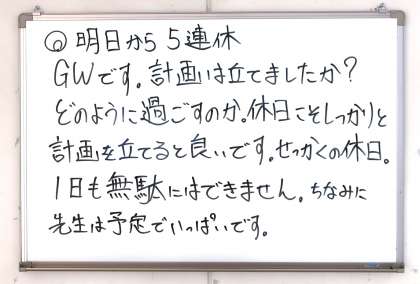 ◎ 明日から5連休
GWです。計画は立てましたか?
どのように過ごすのか。休日こそしっかりと
計画を立てると良いです。せっかくの休日。
1日も無駄にはできません。ちなみに
先生は予定でいっぱいです。